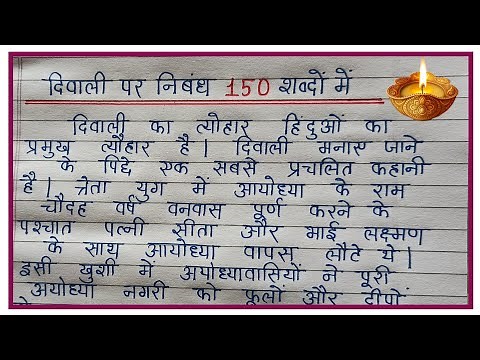 दिवाली पर निबंध 150 शब्दों में
दिवाली का त्योहार हिंदुओं का
प्रमुख त्यौहार है | दिवाली मनास जाने
के पिद्दे एक सबसे प्रचलित कहानी
है | त्रेता युग में आयोध्या के राम
चौदह वर्ष वनवास पूर्ण करने के
पश्चात पत्नी सीता और भाई लक्ष्मण
के साथ आयोध्या वापस लौटे थे |
इसी खुशी में अयोध्यावासियों ने पूरी
अयोध्या नगरी को फूलों और दीपों